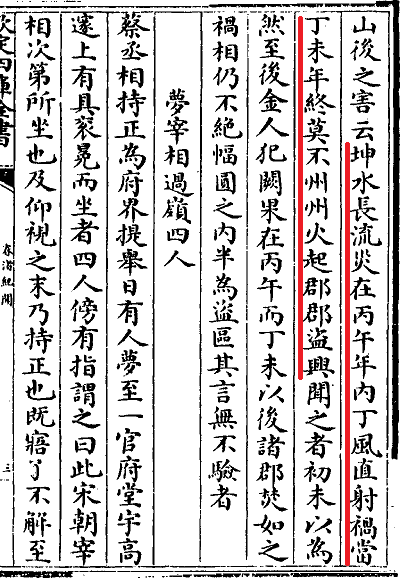 山後之害云坤水長流災在丙午年內丁風直射禍當
丁未年終莫不州州火起郡郡盜興聞之者初未以為
然至後金人犯闕果在丙午而丁未以後諸郡焚如之
禍相仍不絶幅圓之內半為盜區其言無不驗者
夢宰相過嶺四人
蔡丞相持正為府界提舉日有人夢至一官府堂宇高
邃上有具衮冕而坐者四人傍有指謂之曰此宋朝宰
相次第所坐也及仰視之末乃持正也既寤了不解至
欽定四庫全書
春渚紀聞
三